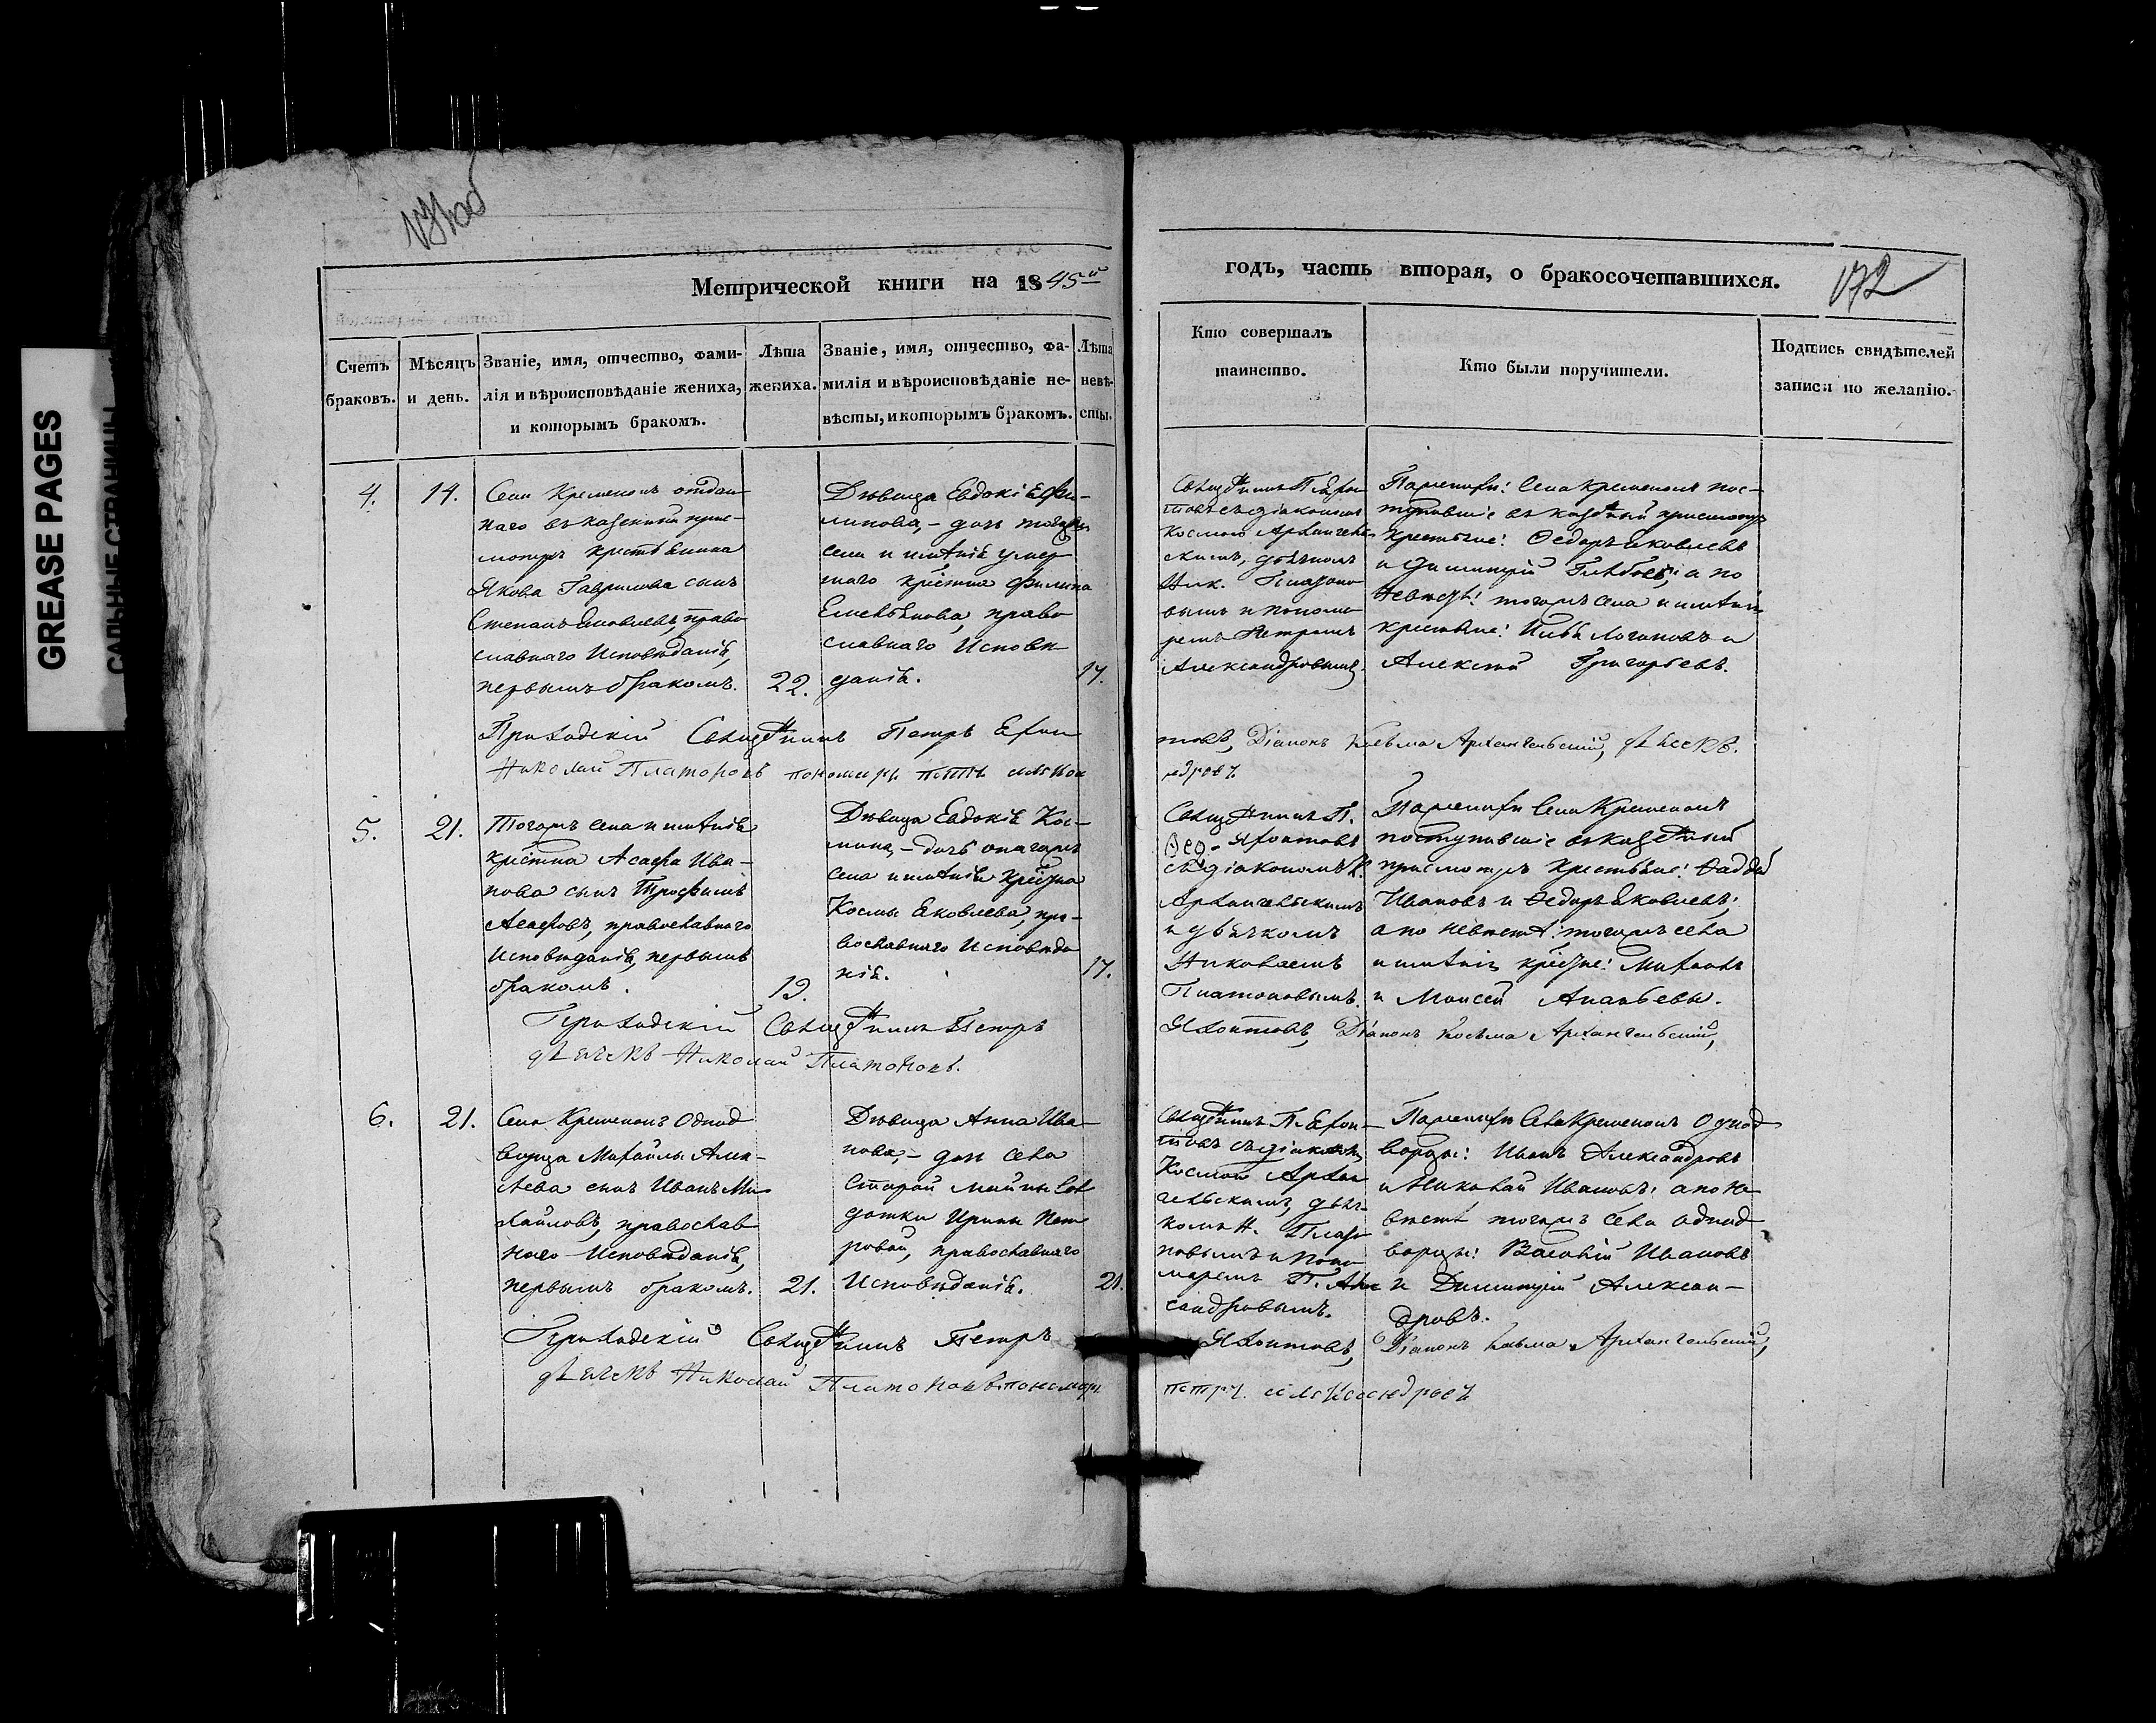 GREASE PAGES
САЛЬНЫЕ СТРАНИЦЫ
Метрической книги на 1845й
годъ, часть вторая, о бракосочетавшихся.
172
Счетъ браковъ.
Мѣсяцъ и день.
Званіе, имя, отчество, фами-
лія и вѣроисповѣданіе жениха,
и которымъ бракомъ.
Лѣта
жениха.
Званіе, имя, отчество, фа-
милія и вѣроисповѣданіе не-
вѣсты, и которымъ бракомъ.
Лѣта
невѣ-
сты.
Кто совершалъ
таинство.
Кто были поручители.
Подпись свидѣтелей
записи по желанію.
4.
14.
Села Кременокъ отдан
наго въ казенный прис-
мотръ крестьянина
Якова Гаврилова сынъ
Степанъ Яковлевъ, право
славнаго Исповѣданія,
первымъ бракомъ.
22.
Дѣвица Евдокія Фи-
липова, – дочь тогожъ
села и имѣнія умер
шаго Филипа
Емельянова, право
славнаго Исповѣ
данія.
17.
съ діакономъ
Космою Архангель
скимъ, дьячкомъ
Ник. Платоно
вымъ и понома
ремъ Петромъ
Александровымъ.
Села Кременокъ пос-
тупившіе въ присмотръ
крестьяне: Ѳедоръ Яковлевъ
и Димитрій Глѣбовъ; а по
невѣстѣ: тогожъ села и имѣнія
крестьяне: Илья Логиновъ и
Алексѣй Григорьевъ.
Приходскій Петръ
Діаконъ Косьма Архангельскій, дьячекъ
Николай Платоновъ пономарь
5.
21.
Тогожъ села и имѣнія
Асафа Ива-
нова сынъ Трофимъ
Асафовъ, православнаго
Исповѣданія, первымъ
бракомъ.
19.
Дѣвица Евдокія Кос-
мина, – дочь онагожъ
села и имѣнія
Космы Яковлева, пра-
вославнаго Исповѣда
нія.
17.
съ діакономъ К.
Архангельскимъ
и дьячкомъ
Николаемъ
Платоновымъ.
Села Кременокъ
поступившіе въ
присмотръ крестьяне: Ѳаддей
Ивановъ и Ѳедоръ Яковлевъ;
а по невѣстѣ: тогожъ села
и имѣнія
и Моисей Ананьевы.
Приходскій Петръ
Діаконъ Косьма Архангельскій,
дьячекъ Николай Платоновъ.
6.
21.
Села Кременокъ Однод
ворца Михайлы Алек-
сѣева сынъ Иванъ Ми
хайловъ, православ
наго Исповѣданія,
первымъ бракомъ.
21.
Дѣвица Анна Ива-
нова, – дочь села
Старой Майны Сол
датки Ирины Пет
ровой, православнаго
Исповѣданія.
21.
съ діакономъ
Космою Архан
гельскимъ, дьяч-
комъ Н. Плато
новымъ и поно
маремъ П. Алек
сандровымъ.
Села Кременокъ Однод
ворцы: Иванъ Александровъ
и Николай Ивановъ; а по не
вѣстѣ тогожъ села однод
ворцы: Василій Ивановъ
и Димитрій Алексан-
дровъ.
Приходскій Петръ
Діаконъ Косьма Архангельскій,
дьячекъ Николай Платоновъ пономарь
петръ александровъ